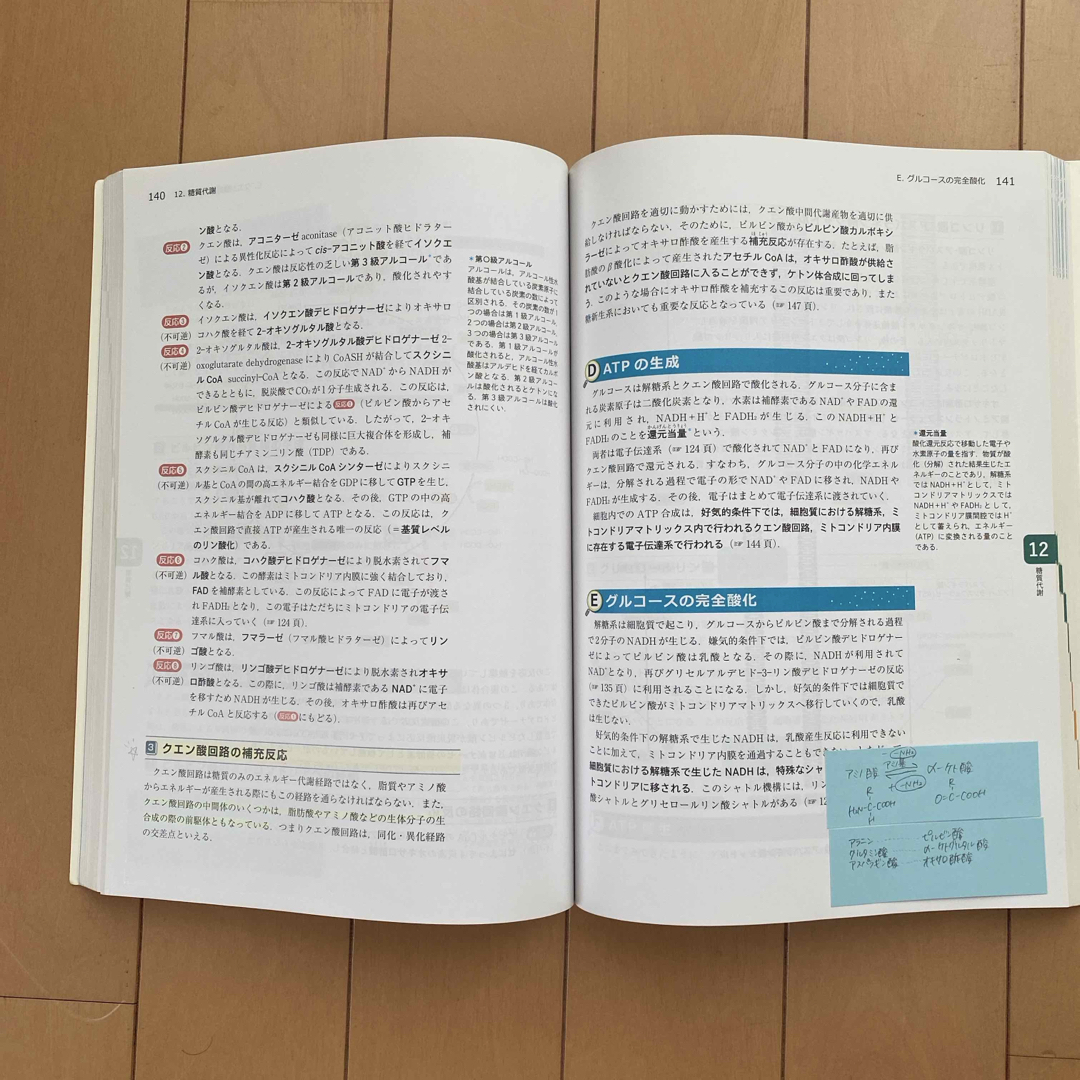 140 12. 糖質代謝
ン酸となる．
反応2 クエン酸は，アコニターゼ aconitase（アコニット酸ヒドラター
ゼ）による異性化反応によって cis-アコニット酸を経てイソクエ
ン酸となる．クエン酸は反応性の乏しい第3級アルコール*であ
るが，イソクエン酸は第2級アルコールであり，酸化されやす
くなる．
反応3 イソクエン酸は，イソクエン酸デヒドロゲナーゼによりオキサロ
(不可逆) コハク酸を経て2-オキソグルタル酸となる．
反応4 2-オキソグルタル酸は，2-オキソグルタル酸デヒドロゲナーゼ 2-
(不可逆) oxoglutarate dehydrogenase により CoASH が結合してスクシニ
ル CoA succinyl-CoA となる．この反応で NAD⁺ から NADH が
できるとともに，脱炭酸で CO₂ が1分子生成される．この反応は，
ピルビン酸デヒドロゲナーゼによる（ピルビン酸からアセ
チル CoA が生じる反応）と類似している．したがって，2-オキ
ソグルタル酸デヒドロゲナーゼも同様に巨大複合体を形成し，補
酵素も同じチアミン二リン酸（TDP）である．
反応5 スクシニル CoA は，スクシニル CoA シンターゼによりスクシニ
(不可逆) ル基と CoA の間の高エネルギー結合を GDP に移して GTP を生じ，
スクシニル基が離れてコハク酸となる．その後，GTP の中の高
エネルギー結合を ADP に移して ATP となる．この反応は，ク
エン酸回路で直接 ATP が産生される唯一の反応（＝基質レベル
のリン酸化）である．
反応6 コハク酸は，コハク酸デヒドロゲナーゼにより脱水素されてフマ
(不可逆) ル酸となる．この酵素はミトコンドリア内膜に強く結合しており，
FAD を補酵素としている．この反応によって FAD に電子が渡さ
れ FADH₂ となり，この電子はただちにミトコンドリアの電子伝
達系に入っていく（☞124頁）．
反応7 フマル酸は，フマラーゼ（フマル酸ヒドラターゼ）によってリン
(不可逆) ゴ酸となる．
反応8 リンゴ酸は，リンゴ酸デヒドロゲナーゼにより脱水素されオキサ
(不可逆) ロ酢酸となる．この際に，リンゴ酸は補酵素である NAD⁺ に電子
を移すため NADH が生じる．その後，オキサロ酢酸は再びアセ
チル CoA と反応する（にもどる）．
3 クエン酸回路の補充反応
クエン酸回路は糖質のみのエネルギー代謝経路ではなく，脂質やアミノ酸
からエネルギーが産生される際にもこの経路を通らなければならない．また，
クエン酸回路の中間体のいくつかは，脂肪酸やアミノ酸などの生体分子の生
合成の際の前駆体ともなっている．つまりクエン酸回路は，同化・異化経路
の交差点といえる．
*第○級アルコール
アルコールは，アルコール性水
酸基が結合している炭素原子に
結合している炭素の数によって
区別される．その炭素の数が1
つの場合は第1級アルコール，
2つの場合は第2級アルコール，
3つの場合は第3級アルコール
である．第1級アルコールが
酸化されると，アルコール性水
酸基はアルデヒドを経てカルボ
ン酸となる．第2級アルコー
ルは酸化されるとケトンにな
る．第3級アルコールは酸化
されにくい．
E. グルコースの完全酸化 141
クエン酸回路を適切に動かすためには，クエン酸中間代謝産物を適切に供
給しなければならない．そのために，ピルビン酸からピルビン酸カルボキシ
ラーゼによってオキサロ酢酸を産生する補充反応が存在する．たとえば，脂
肪酸のβ酸化によって産生されたアセチル CoA は，オキサロ酢酸が供給さ
れていないとクエン酸回路に入ることができず，ケトン体合成に回ってしま
う．このような場合にオキサロ酢酸を補充するこの反応は重要であり，また
糖新生系においても重要な反応となっている（☞147頁）．
D ATP の生成
グルコースは解糖系とクエン酸回路で酸化される．グルコース分子に含ま
れる炭素原子は二酸化炭素となり，水素は補酵素である NAD⁺ や FAD の還
元に利用され，NADH+H⁺ と FADH₂ が生じる．この NADH+H⁺ と
FADH₂ のことを還元当量*という．
両者は電子伝達系（☞124頁）で酸化されて NAD⁺ と FAD になり，再び
クエン酸回路で還元される．すなわち，グルコース分子の中の化学エネル
ギーは，分解される過程で電子の形で NAD⁺ や FAD に移され，NADH や
FADH₂ が生成する．その後，電子はまとめて電子伝達系に渡されていく．
細胞内での ATP 合成は，好気的条件下では，細胞質における解糖系，ミ
トコンドリアマトリックス内で行われるクエン酸回路，ミトコンドリア内膜
に存在する電子伝達系で行われる（☞144頁）．
*還元当量
酸化還元反応で移動した電子や
水素原子の量を指す．物質が酸
化（分解）された結果生じたエ
ネルギーのことであり，解糖系
では NADH+H⁺ として，ミト
コンドリアマトリックスでは
NADH+H⁺ や FADH₂ として，
ミトコンドリア膜間腔では H⁺
として蓄えられ，エネルギー
(ATP) に変換される量のこと
である．
12
糖質代謝
E グルコースの完全酸化
解糖系は細胞質で起こり，グルコースからピルビン酸まで分解される過程
で2分子の NADH が生じる．嫌気的条件下では，ピルビン酸デヒドロゲナー
ゼによってピルビン酸は乳酸となる．その際に，NADH が利用されて
NAD⁺ となり，再びグリセルアルデヒド-3-リン酸デヒドロゲナーゼの反応
（☞135頁）に利用されることになる．しかし，好気的条件下では細胞質で
できたピルビン酸がミトコンドリアマトリックスへ移行していくので，乳酸
は生じない．
好気的条件下の解糖系で生じた NADH は，乳酸産生反応に利用できない
ことに加えて，ミトコンドリア内膜を通過することもでき
細胞質における解糖系で生じた NADH は，特殊なシャ
トコンドリアに移される．このシャトル機構には，リン
酸シャトルとグリセロールリン酸シャトルがある（☞12
- -NH₂
アミノ基
アミノ酸 α-ケト酸
+ -NH₂
R R
H₂N-C-COOH O=C-COOH
H
アラニン ピルビン酸
グルタミン酸 α-ケトグルタル酸
アスパラギン酸 オキサロ酢酸